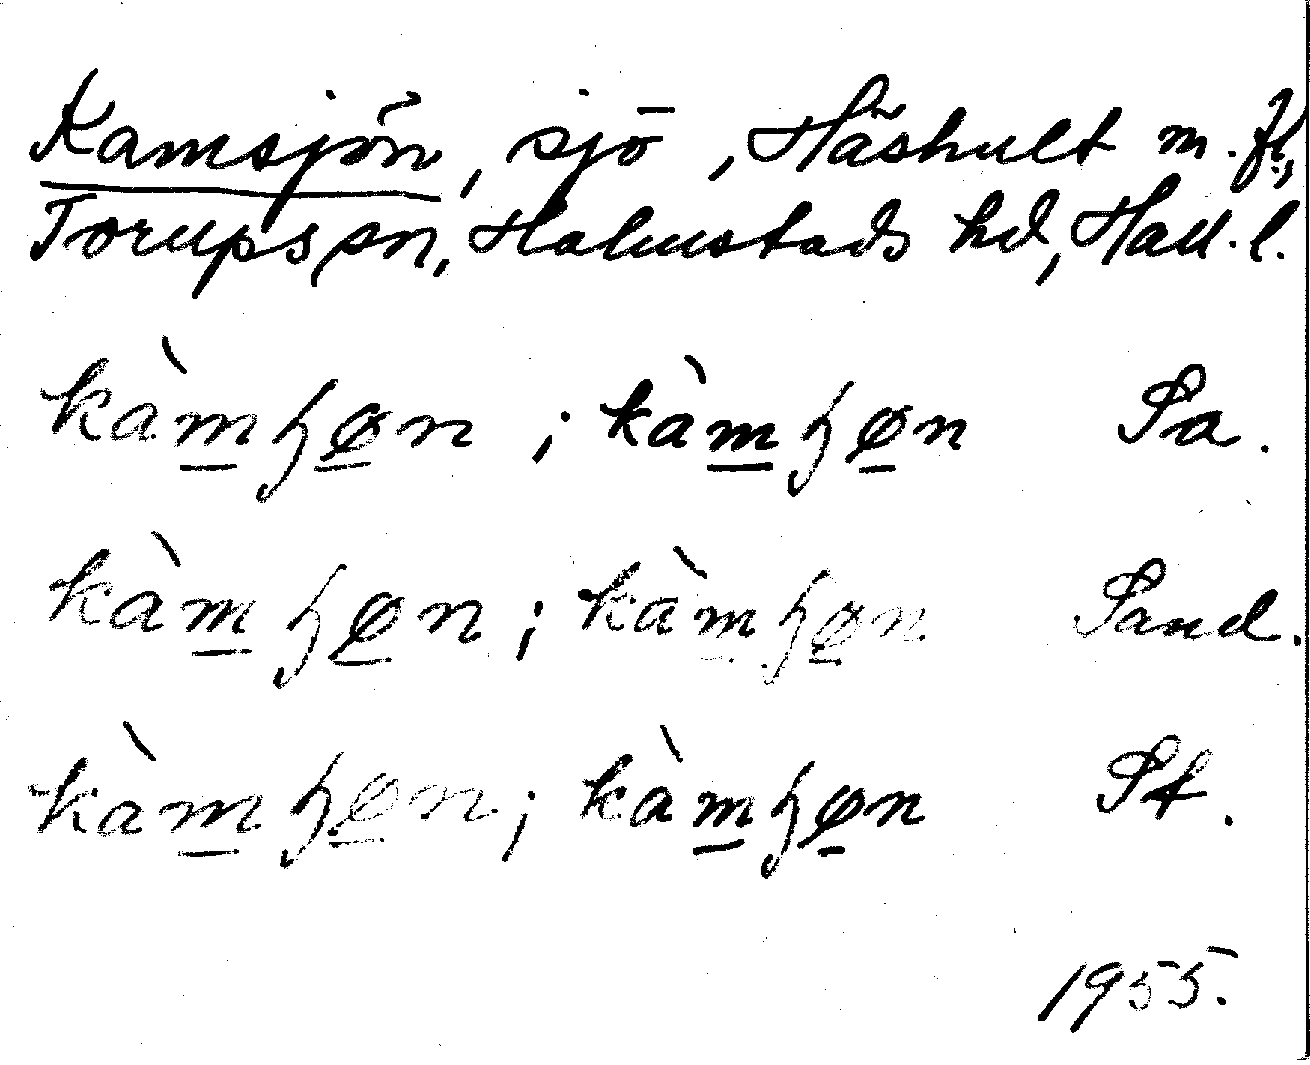 Kamsjön, sjö, Häshult m. fl.,
Torups sn, Halmstads hd, Hall. l.
kàmɧøn; kàmɧøn Sa.
kàmɧøn; kàmɧøn Sand.
kàmɧøn; kàmɧøn St.
1955.